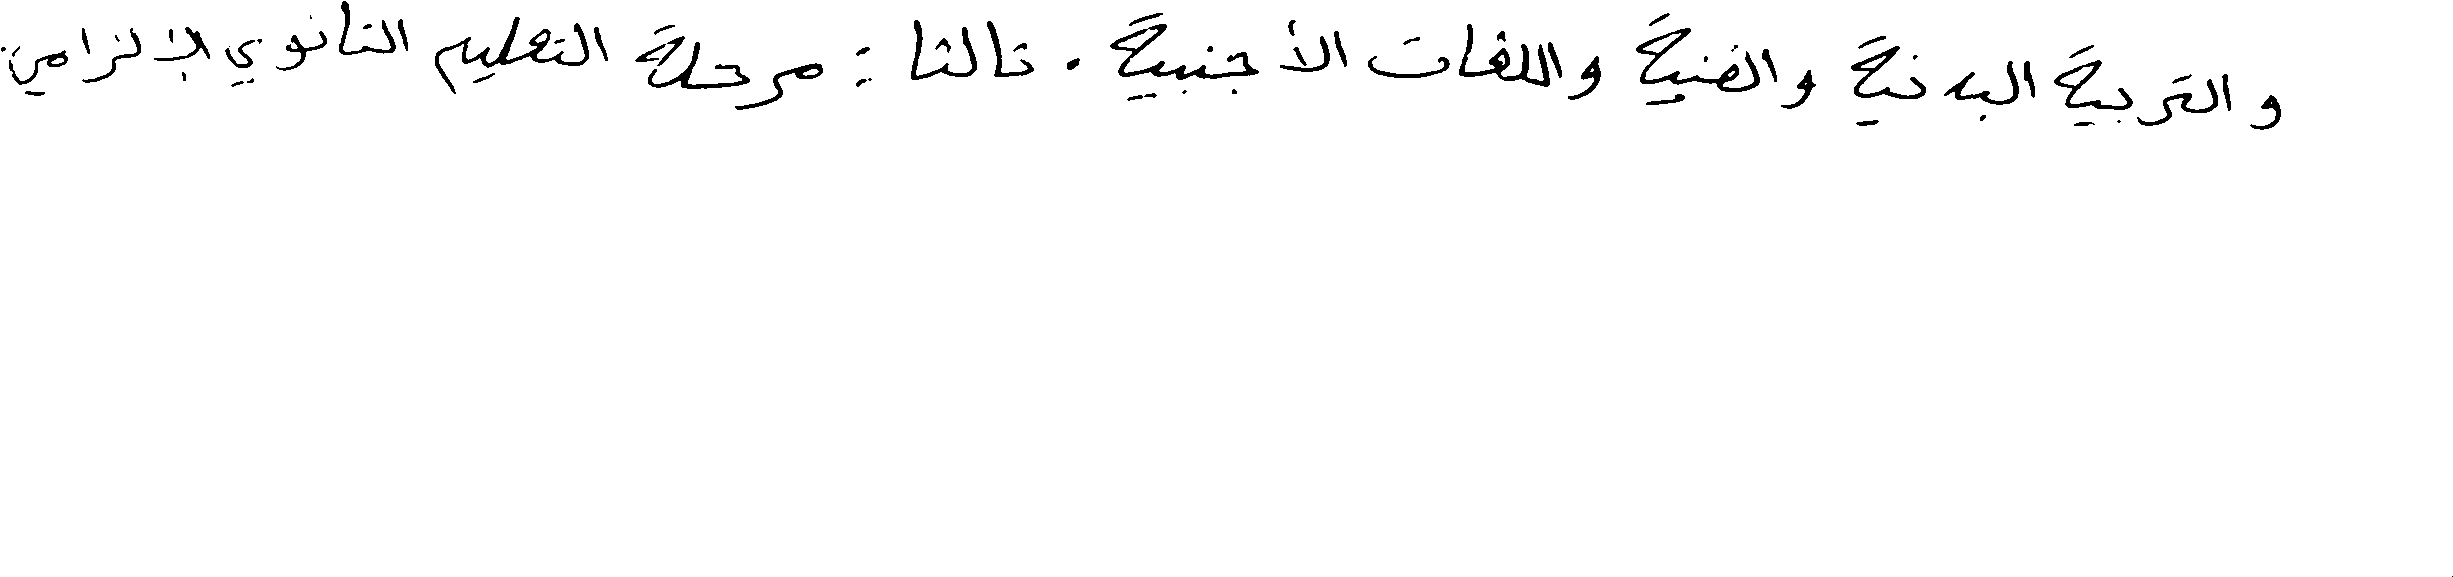 والتربية البدنية والفنية واللغات الأجنبية . ثالثا : مرحلة التعليم الثانوي الإلزامي :